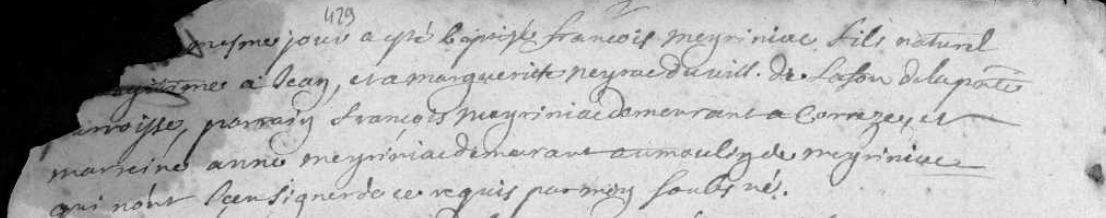 429
mesme jour a esté baptisé françois meyriniac fils naturel
à Jean, et a marguerite neyrac du vill. de la presente
parroisse, parrain françois meyriniac demeurant a Correze, et
marreine anne meyriniac demeurant au moulin de meyriniac
qui n'ont sceu signer de ce requis par moy soubsné.